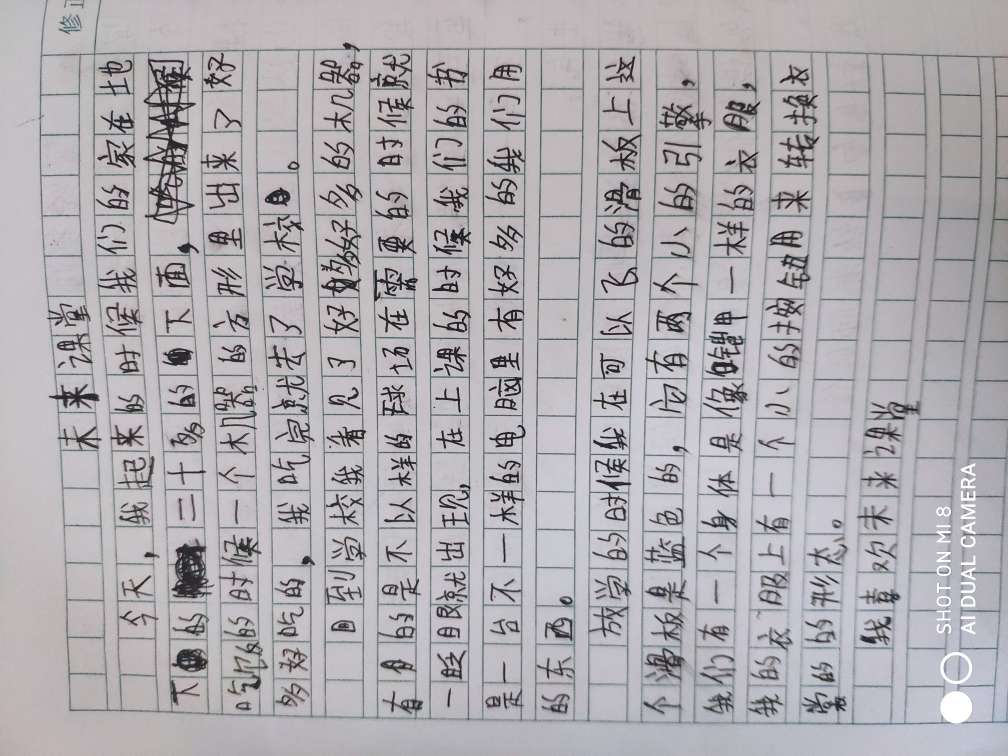 修正
未来课堂
今天，我起来的时候我们的家在地
下的二十多的下面，
吃饭的时候一个机器的方形里出来了好
多好吃的，我吃完就去了学校。
到学校我看见了好多好多的机器，
有的是不以样的球场在需要的时候就
一眨眼就出现，在上课的时候我们的书
是一台不一样的电脑里有好多的我们用
的东西。
放学的时候我在可以飞的滑板上这
个滑板是蓝色的，它有两个小的引擎，
我们有一个身体是像铠甲一样的衣服，
我的衣服上有一个小的按钮用来转换衣
的形态。
我喜欢未来课堂
SHOT ON MI 8
AI DUAL CAMERA